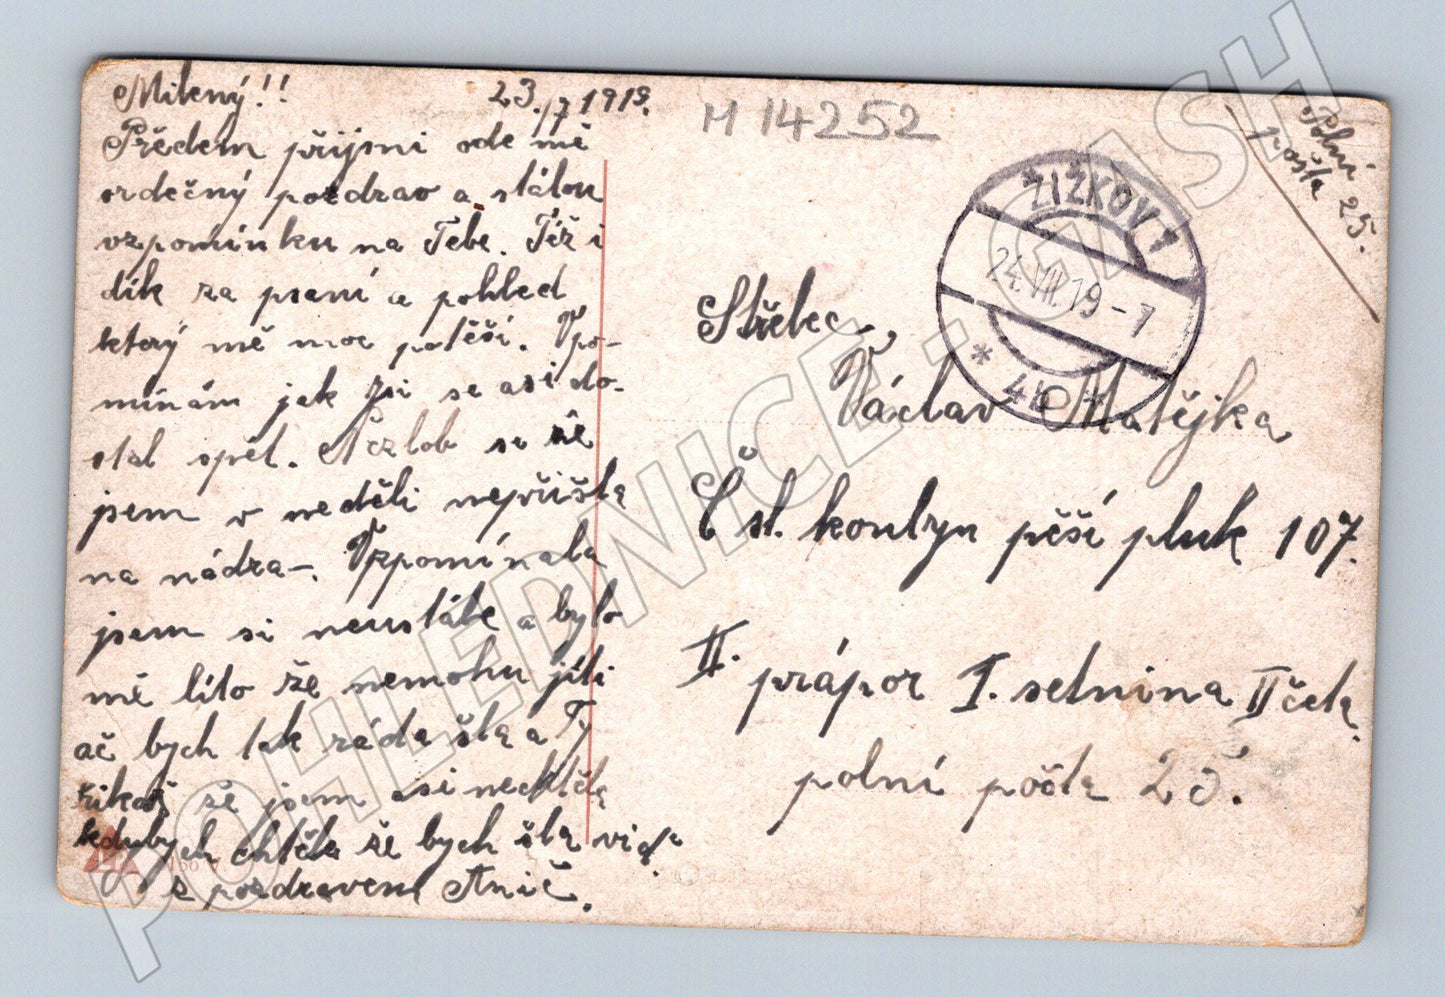 Milený!! 23./7 1919.
Předem přijmi ode mě
srdečný pozdrav a stálou
vzpomínku na Tebe. Též i
dík za psaní a pohled
který mě moc potěší. Vpo-
mínám jak jsi se asi do-
stal spět. Nezlob se že
jsem v neděli nepřišla
na nádra-. Vzpomínala
jsem si neustále a bylo
mě líto že nemohu jíti
ač bych tak ráda šla a Ty
říkáš že jsem asi nechtěla
kdybych chtěla že bych šla viď.
S pozdravem Anič.
M 14252
Polní
pošta 25.
ŽIŽKOV 1
24.VII.19-7
* 4b *
Střelec,
Václav Matějka
Č sl. koulzyn pěší pluk 107.
II. prápor I. setnina II četa
polní pošta 25.
POHLEDNICE - GASH